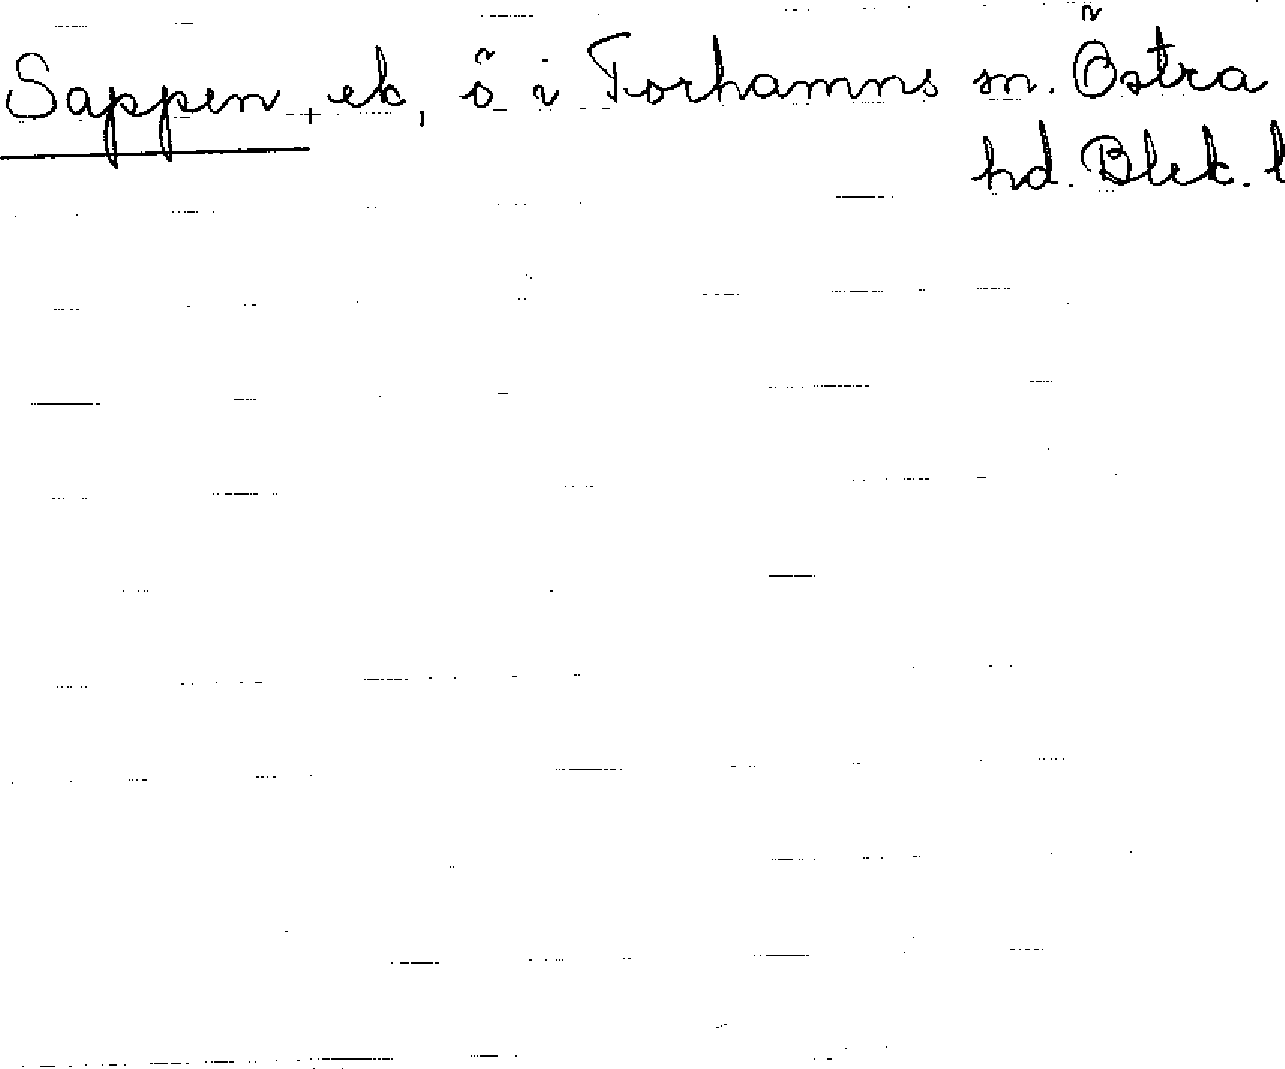 Sappen, ek, ö i Torhamns sn. Östra
hd. Blek. l